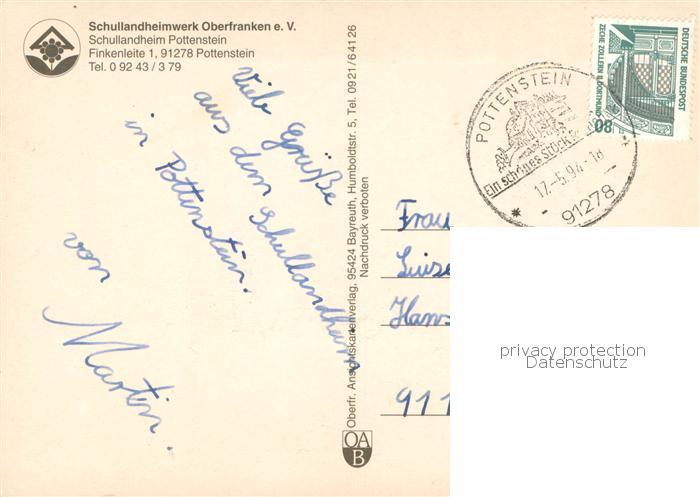 Schullandheimwerk Oberfranken e. V.
Schullandheim Pottenstein
Finkenleite 1, 91278 Pottenstein
Tel. 0 92 43 / 3 79
Viele Grüße
aus dem Schullandheim
in Pottenstein.
von
Martin.
Oberfr. Ansichtskartenverlag, 95424 Bayreuth, Humboldtstr. 5, Tel. 09 21 / 6 41 26
Nachdruck verboten
OA
B
POTTENSTEIN
Ein schönes Stück
17.-5.94.-18
91278
DEUTSCHE BUNDESPOST
80
ZECHE ZOLLERN II, DORTMUND
Frau
Luise
Hans
911
privacy protection
Datenschutz